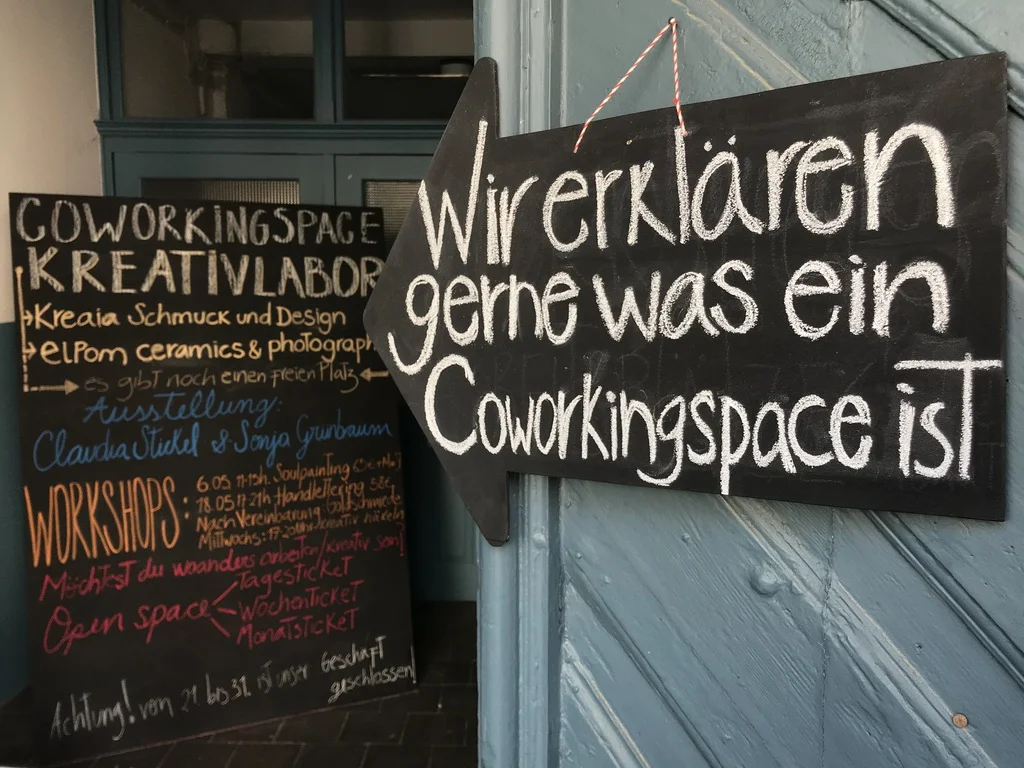 COWORKINGSPACE
KREATIVLABOR
Kreaia Schmuck und Design
elPom ceramics & photograph
es gibt noch einen freien Platz
Ausstellung:
Claudia Stickel & Sonja Grünbaum
WORKSHOPS:
6.05 Soulpainting
18.05 17-21h Handlettering 58€
Nach Vereinbarung Goldschmiede
Mittwochs: kreativ nähen
Möchtest du woanders arbeiten/kreativ sein?
Open space
Tagesticket
Wochenticket
Monatsticket
Achtung! vom 21. bis 31. ist unser Geschäft
geschlossen!
Wir erklären
gerne was ein
Coworkingspace ist